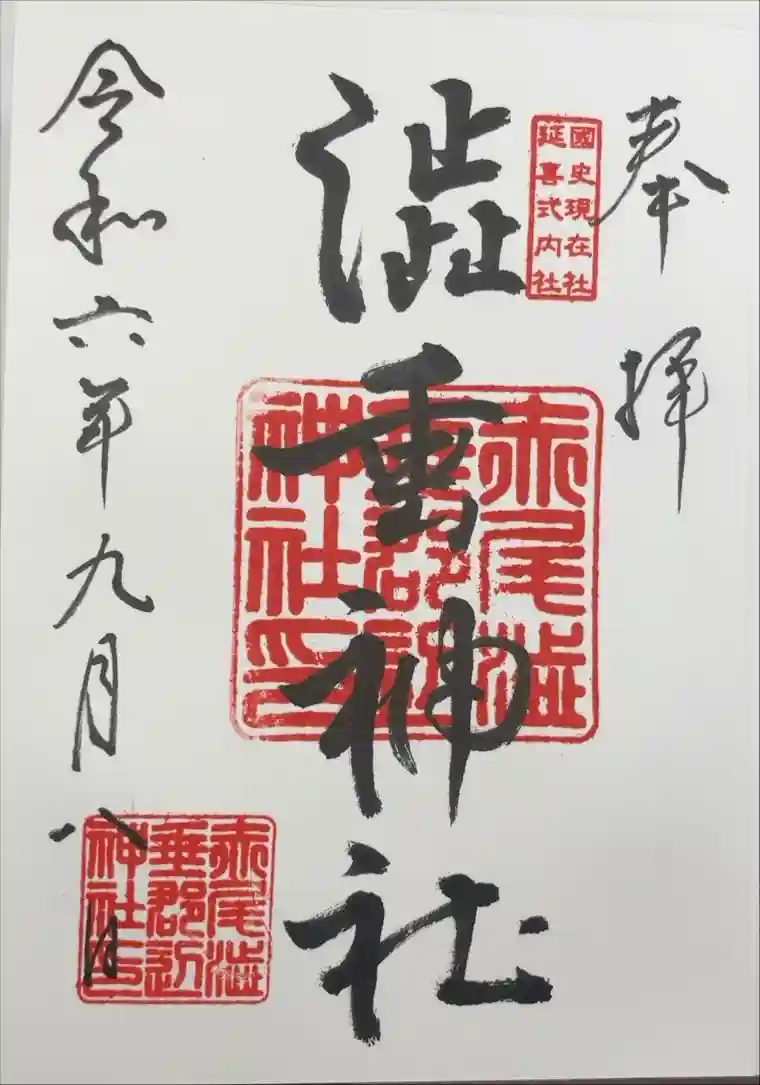 奉拝
國史現在社
延喜式内社
澁垂神社
赤尾澁
垂郡辺
神社印
令和六年九月八日
赤尾澁
垂郡辺
神社印